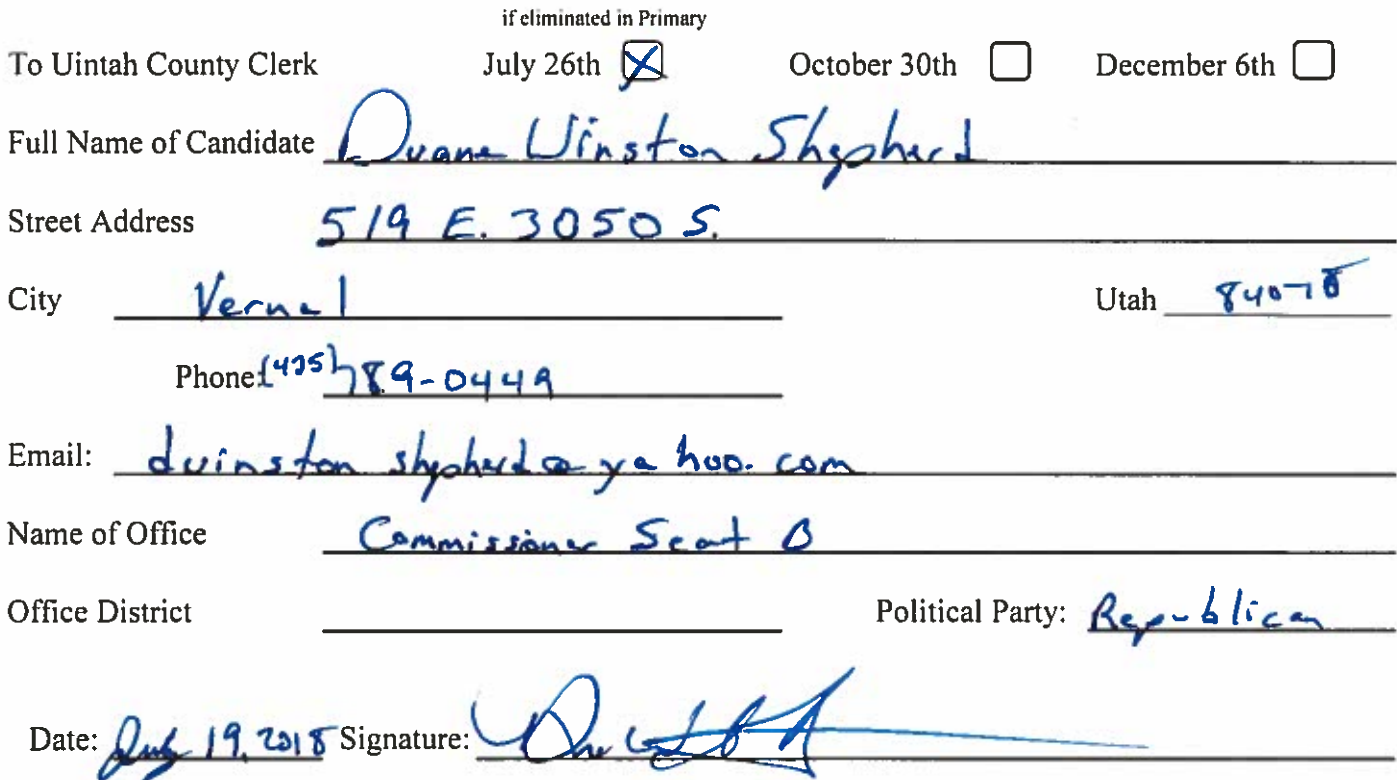 if eliminated in Primary
To Uintah County Clerk July 26th ☒ October 30th ☐ December 6th ☐
Full Name of Candidate Duane Winston Shepherd
Street Address 519 E. 3050 S.
City Vernal Utah 84078
Phone: (435) 789-0449
Email: dwinstonshepherd@yahoo.com
Name of Office Commissioner Seat B
Office District Political Party: Republican
Date: July 19, 2018 Signature: